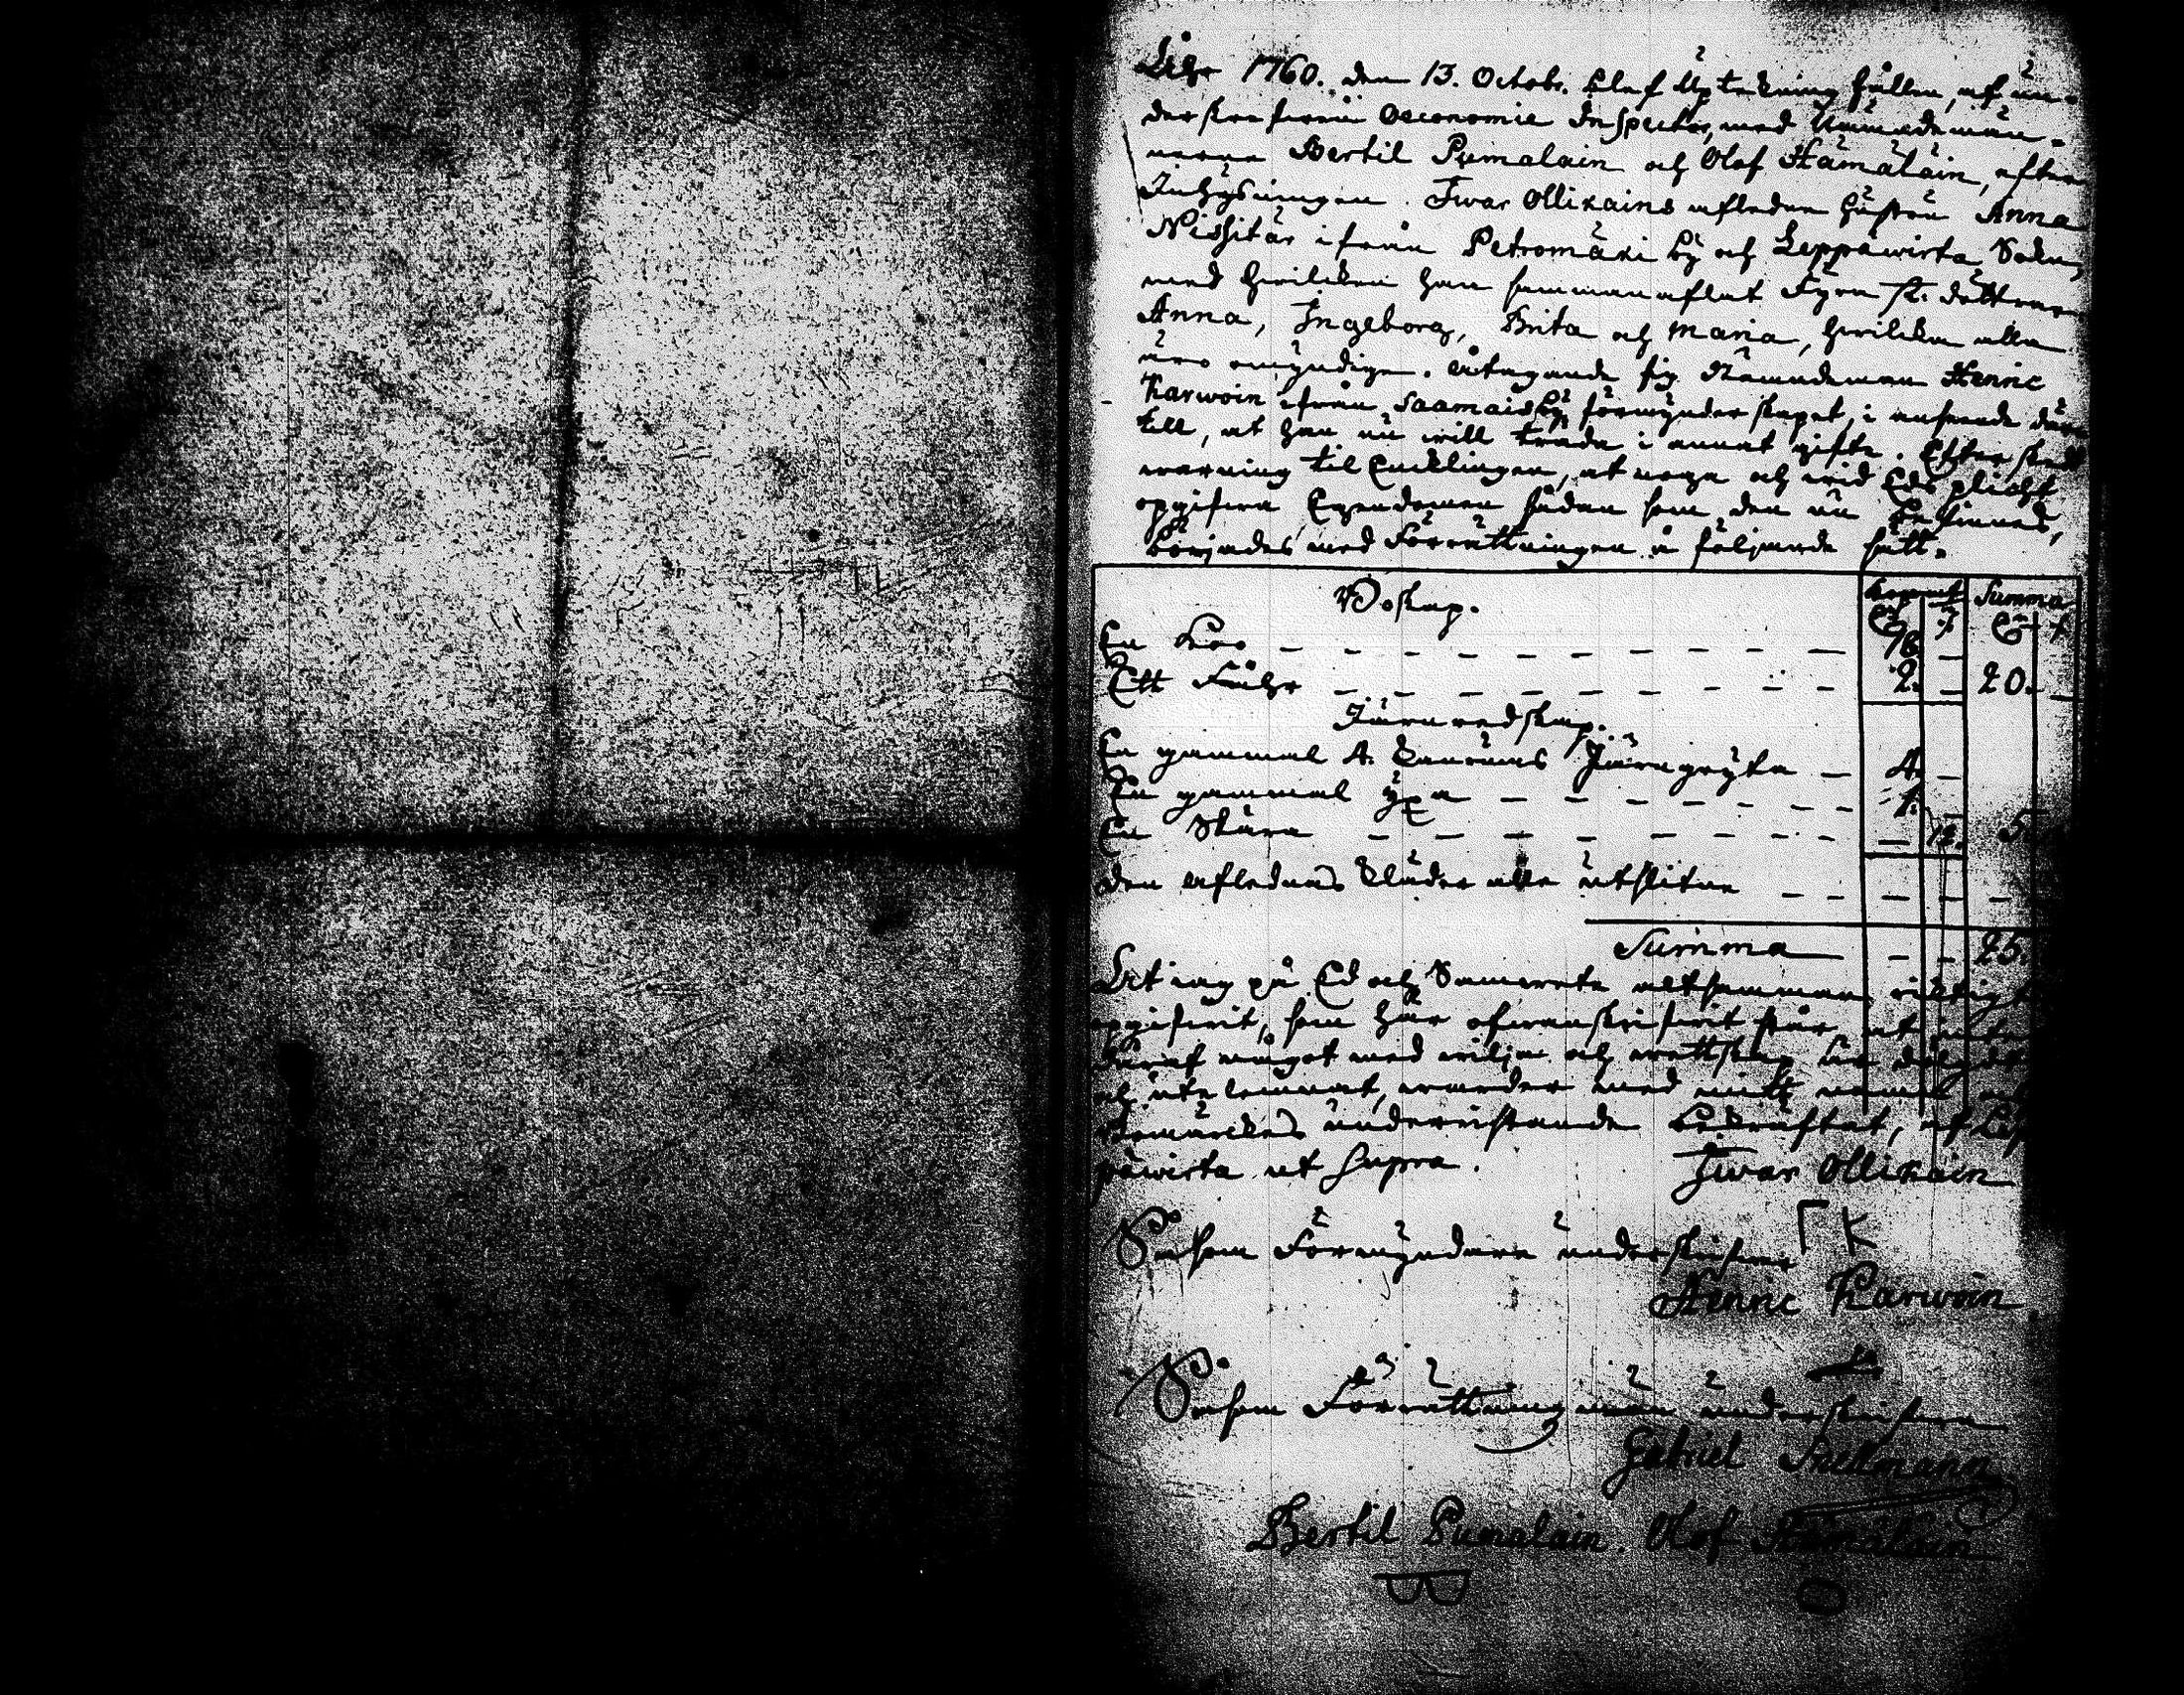 Åhr 1760. den 13. Octobr. blef Upteckning hållen, af un-
derskrefwen Oeconomie Inspector, med Nämndemän-
nerne Bertil Pumalain och Olof Hämäläin, efter
Inhysingen Iwar Ollikains afledne hustru Anna
Nissitär ifrån Petromäki by och Leppäwirta Sokn,
med hwilcken han sammanaflat Fyra st. döttrar
Anna, Ingeborg, Brita och Maria, hwilcka alla
äro omyndige. åtagande sig Nämndeman Henric
Karwoin ifrån Saamais by förmynderskapet, i anseende där
till, at han nu will träda i annat gifte. Efter skedd
warning til Encklingen, at noga och wid Eds plicht
opgifwa Egendomen sådan som den nu befinnes,
börjades med Förrättningen å följande sätt.
Boskap.
Summa
En Ko — 18. —
Ett Fåhr — 2. — 20. —
Järnredskap.
En gammal 4. kannors Järngryta — 4. —
En gammal yxa — 1. —
En Skära — — 12. 5.
Den aflednas kläder alla utslitne — — —
Summa — — 25.
At jag på Ed och Samwete altsamman richtigt
opgifwit, som här ofwanskrifwit står, at intet
däraf något med wilja och wettskap är
och utelemnat, warder med mitt namn och
Bomärckes underristande bekräftat, af Lep-
päwirta ut supra. Iwar Ollikain
Såsom Förmyndare underskrifwer
Henric Karwoin
Såsom Förrättningsmän underskrifwa
Gabriel
Bertil Pumalain. Olof Hämäläin